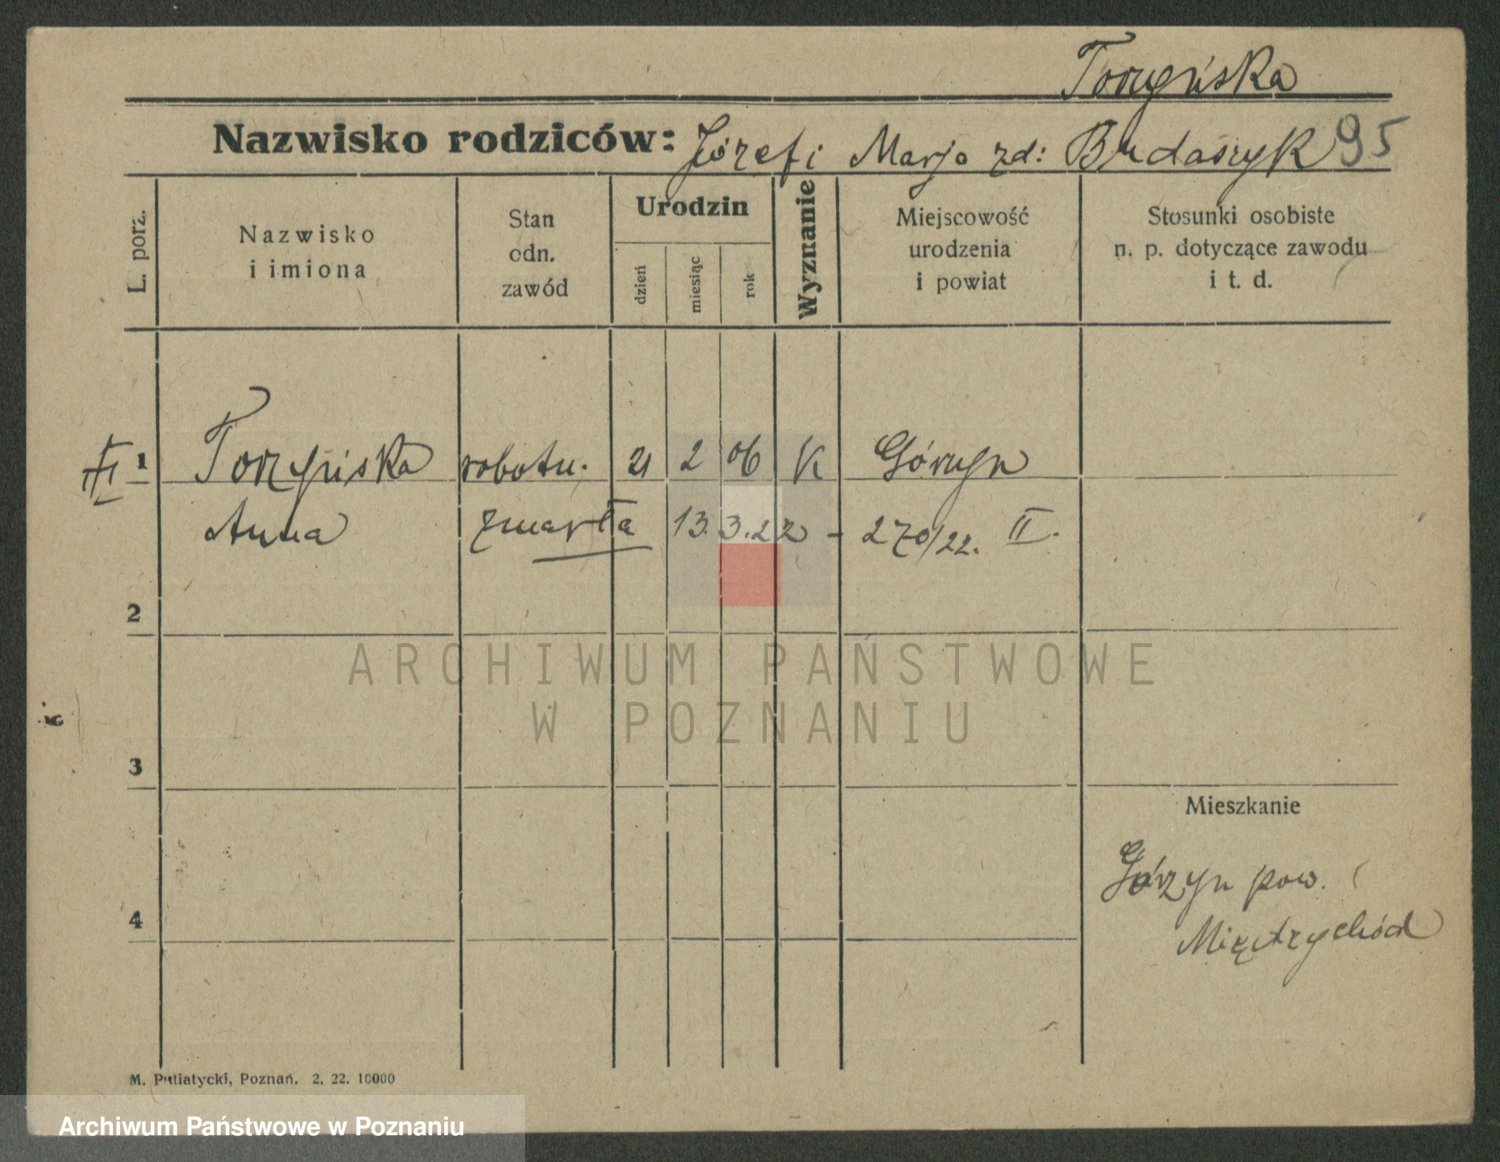 Torzyńska
Nazwisko rodziców: Józef i Marja zd: Budaszyk 95
L. porz.
Nazwisko
i imiona
Stan
odn.
zawód
Urodzin
dzień
miesiąc
rok
Wyznanie
Miejscowość
urodzenia
i powiat
Stosunki osobiste
n. p. dotyczące zawodu
i t. d.
1 Torzyńska robotn. 21 2 06 K Górzyn
Anna zmarła 13.3.22 - 270/22. II.
2
3
4
Mieszkanie
Górzyn pow.
Międzychód
M. Putiatycki, Poznań. 2. 22. 10000
ARCHIWUM PAŃSTWOWE
W POZNANIU
Archiwum Państwowe w Poznaniu